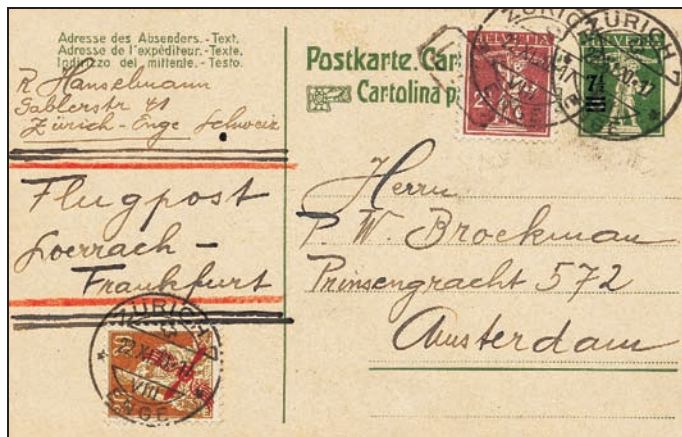 Adresse des Absenders.-Text.
Adresse de l'expéditeur.-Texte.
Indirizzo del mittente.-Testo.
R Hanselmann
Gablerstr 41
Zürich-Enge Schweiz
Flugpost
Loerrach-
Frankfurt
ZÜRICH 7
VIII
ENGE
Postkarte. Car
Cartolina p
HELVETIA
2
ZÜRICH 7
VIII
ENGE
HELVETIA
7½
ZÜRICH 7
ENGE
Herrn
P. W. Broekman
Prinsengracht 572
Amsterdam